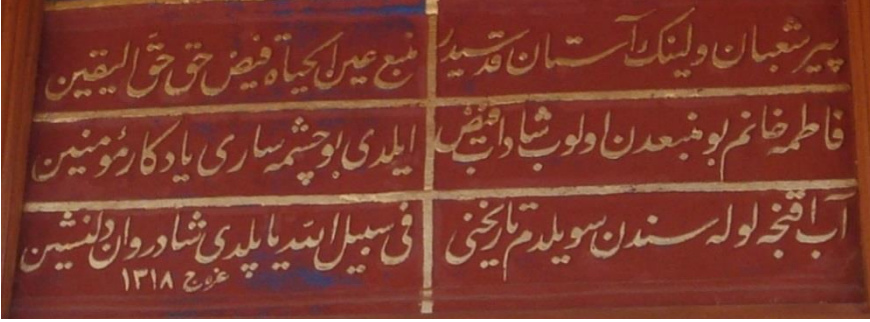 پیر شعبان ولینک آستان قدسیدر
منبع عین الحیاة فیض حق حق الیقین
فاطمه خانم بو منبعدن اولوب شاداب فیض
ایلدی بو چشمه ساری یادکار مؤمنین
آب اقنجه لوله سندن سویلدم تاریخنی
فی سبیل الله یاپلدی شادروان دلنشین
١٣١٨